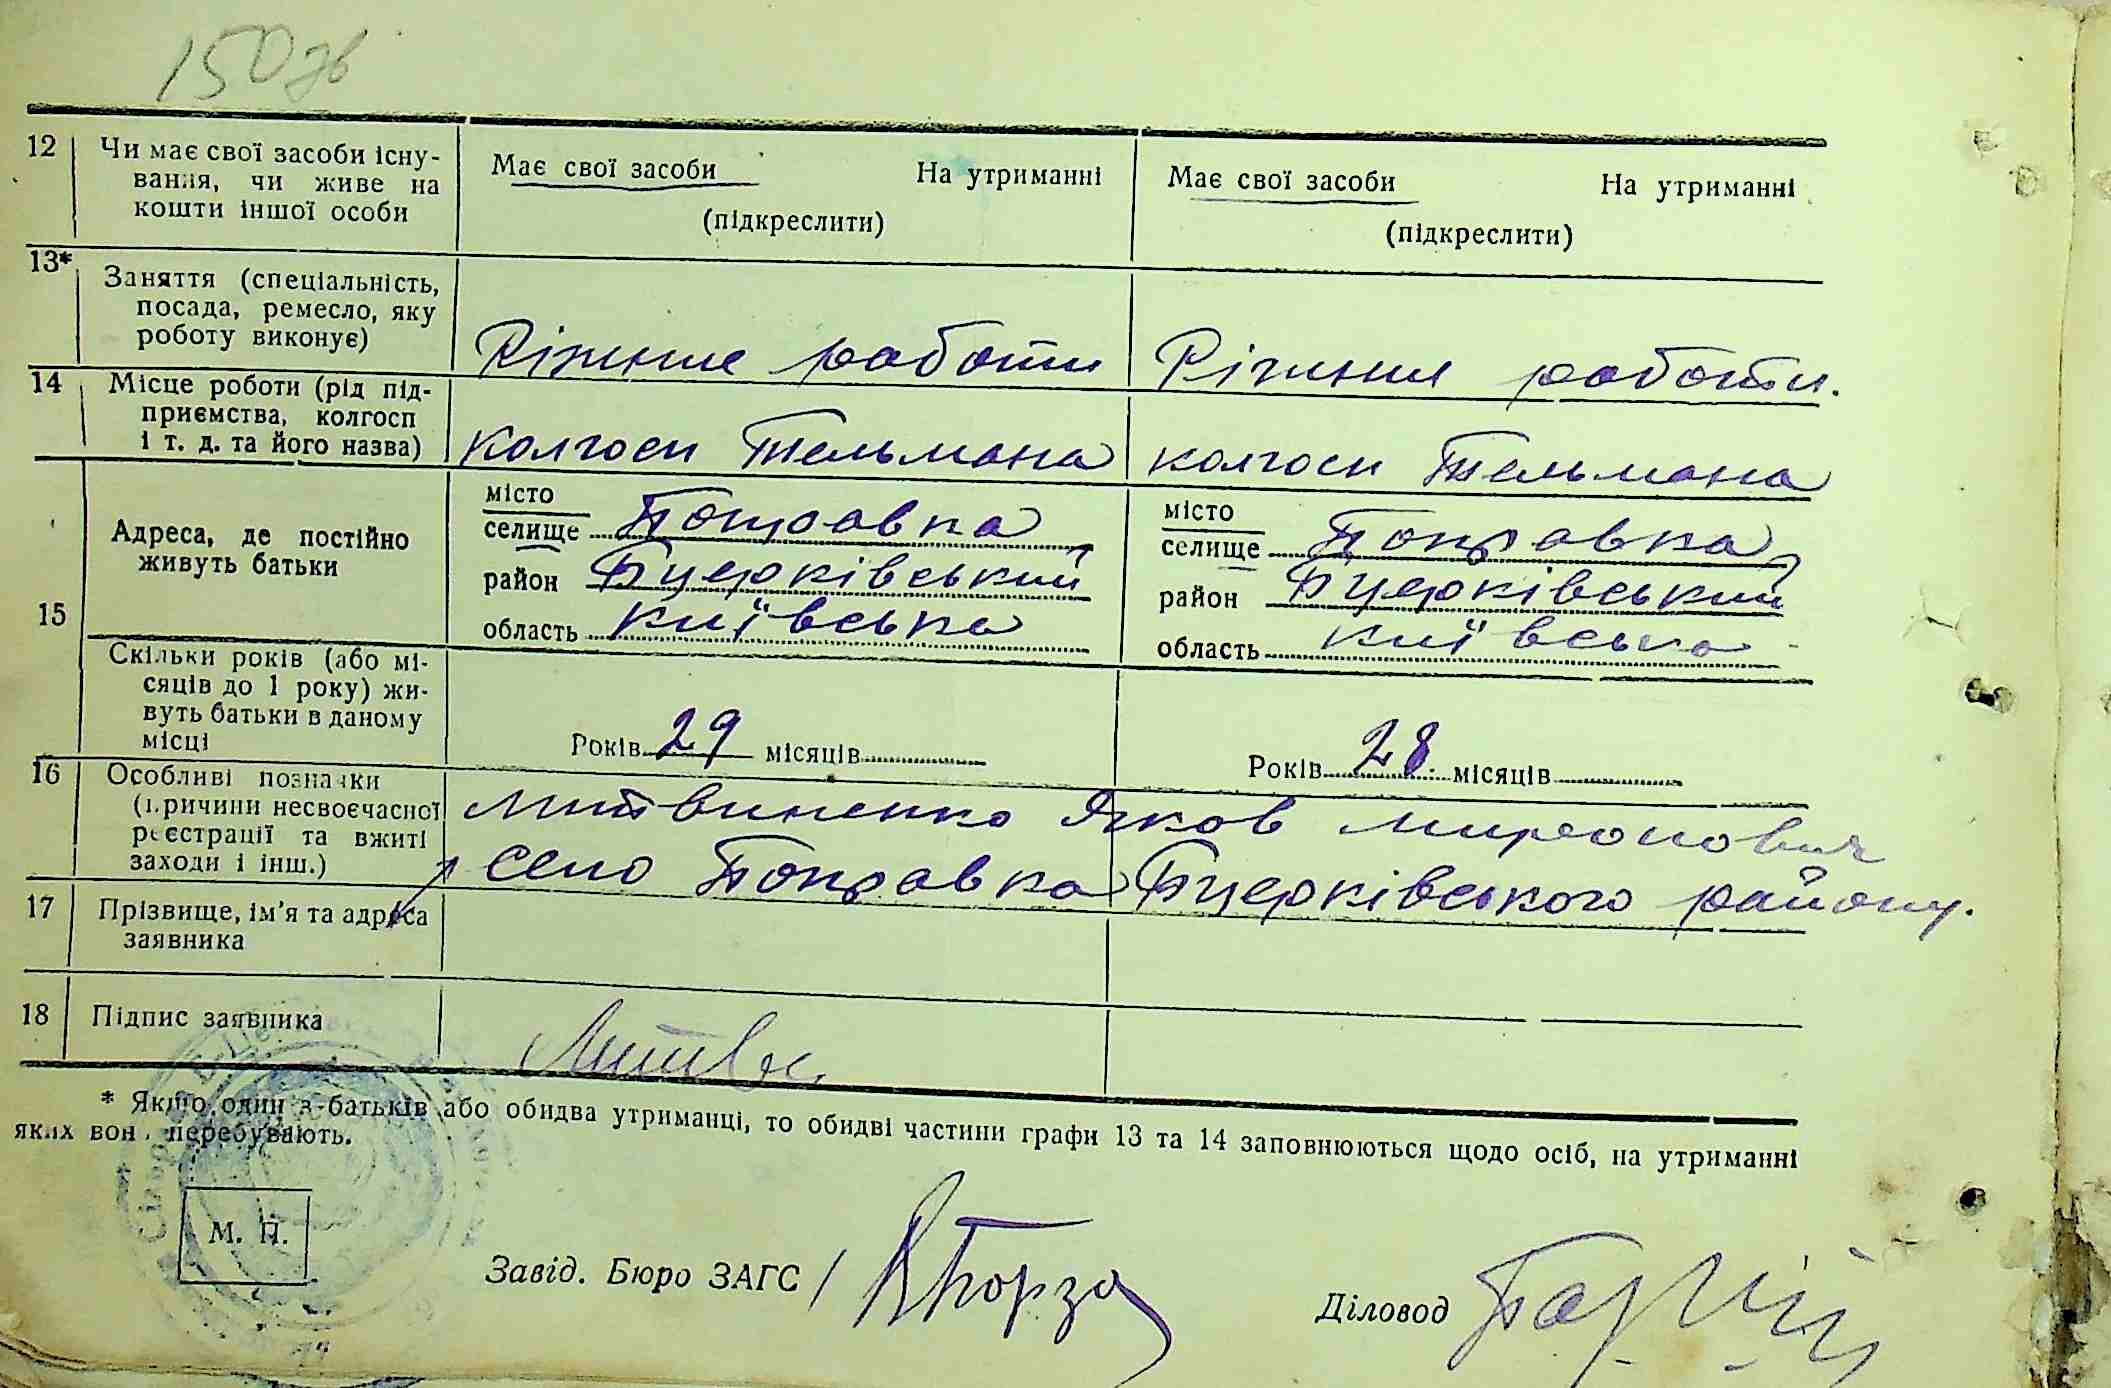 150 зв
12 Чи має свої засоби існу-
вання, чи живе на
кошти іншої особи
Має свої засоби На утриманні
(підкреслити)
Має свої засоби На утриманні
(підкреслити)
13* Заняття (спеціальність,
посада, ремесло, яку
роботу виконує)
Ріжние работи
Ріжние работи.
14 Місце роботи (рід під-
приємства, колгосп
і т. д. та його назва)
колгосп Тельмана
колгосп Тельмана
15
Адреса, де постійно
живуть батьки
місто
селище Поправка
район Бцерківський
область київська
місто
селище Поправка
район Бцерківський
область київська
Скільки років (або мі-
сяців до 1 року) жи-
вуть батьки в даному
місці
Років 29 місяців
Років 28 місяців
16 Особливі позначки
(причини несвоєчасної
реєстрації та вжиті
заходи і інш.)
Литвиненко Яков Миронович
село Поправка Бцерківського району.
17 Прізвище, ім'я та адреса
заявника
18 Підпис заявника
Литвин
* Якщо один з батьків або обидва утриманці, то обидві частини графи 13 та 14 заповнюються щодо осіб, на утриманні
яких вони перебувають.
М. П.
Завід. Бюро ЗАГС
Діловод